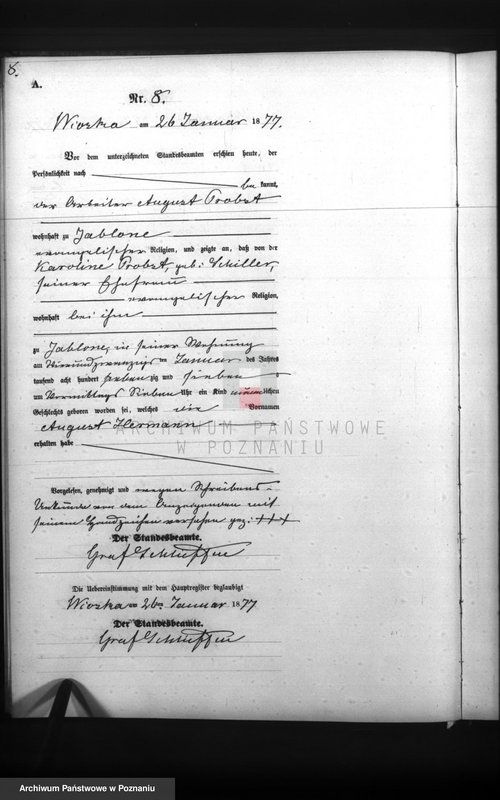 8.
A.
Nr. 8.
Wioska am 26 Januar 1877.
Vor dem unterzeichneten Standesbeamten erschien heute, der
Persönlichkeit nach
be kannt,
der Arbeiter August Probst
wohnhaft zu Jablone
evangelischer Religion, und zeigte an, daß von der
Karoline Probst, geb: Schiller,
seiner Ehefrau
evangelischer Religion,
wohnhaft bei ihm
zu Jablone, in seiner Wohnung
am Vierundzwanzigsten Januar des Jahres
tausend acht hundert sieben zig und sieben
um Vormittags Sieben Uhr ein Kind männlichen
Geschlechts geboren worden sei, welches die Vornamen
August Hermann
erhalten habe
Vorgelesen, genehmigt und wegen Schreibens-
Unkunde von dem Anzeigenden mit
seinem Handzeichen versehen gez: +++
Der Standesbeamte.
Graf
Die Uebereinstimmung mit dem Hauptregister beglaubigt
Wioska am 26ten Januar 1877
Der Standesbeamte.
Graf
ARCHIWUM PAŃSTWOWE
W POZNANIU
Archiwum Państwowe w Poznaniu